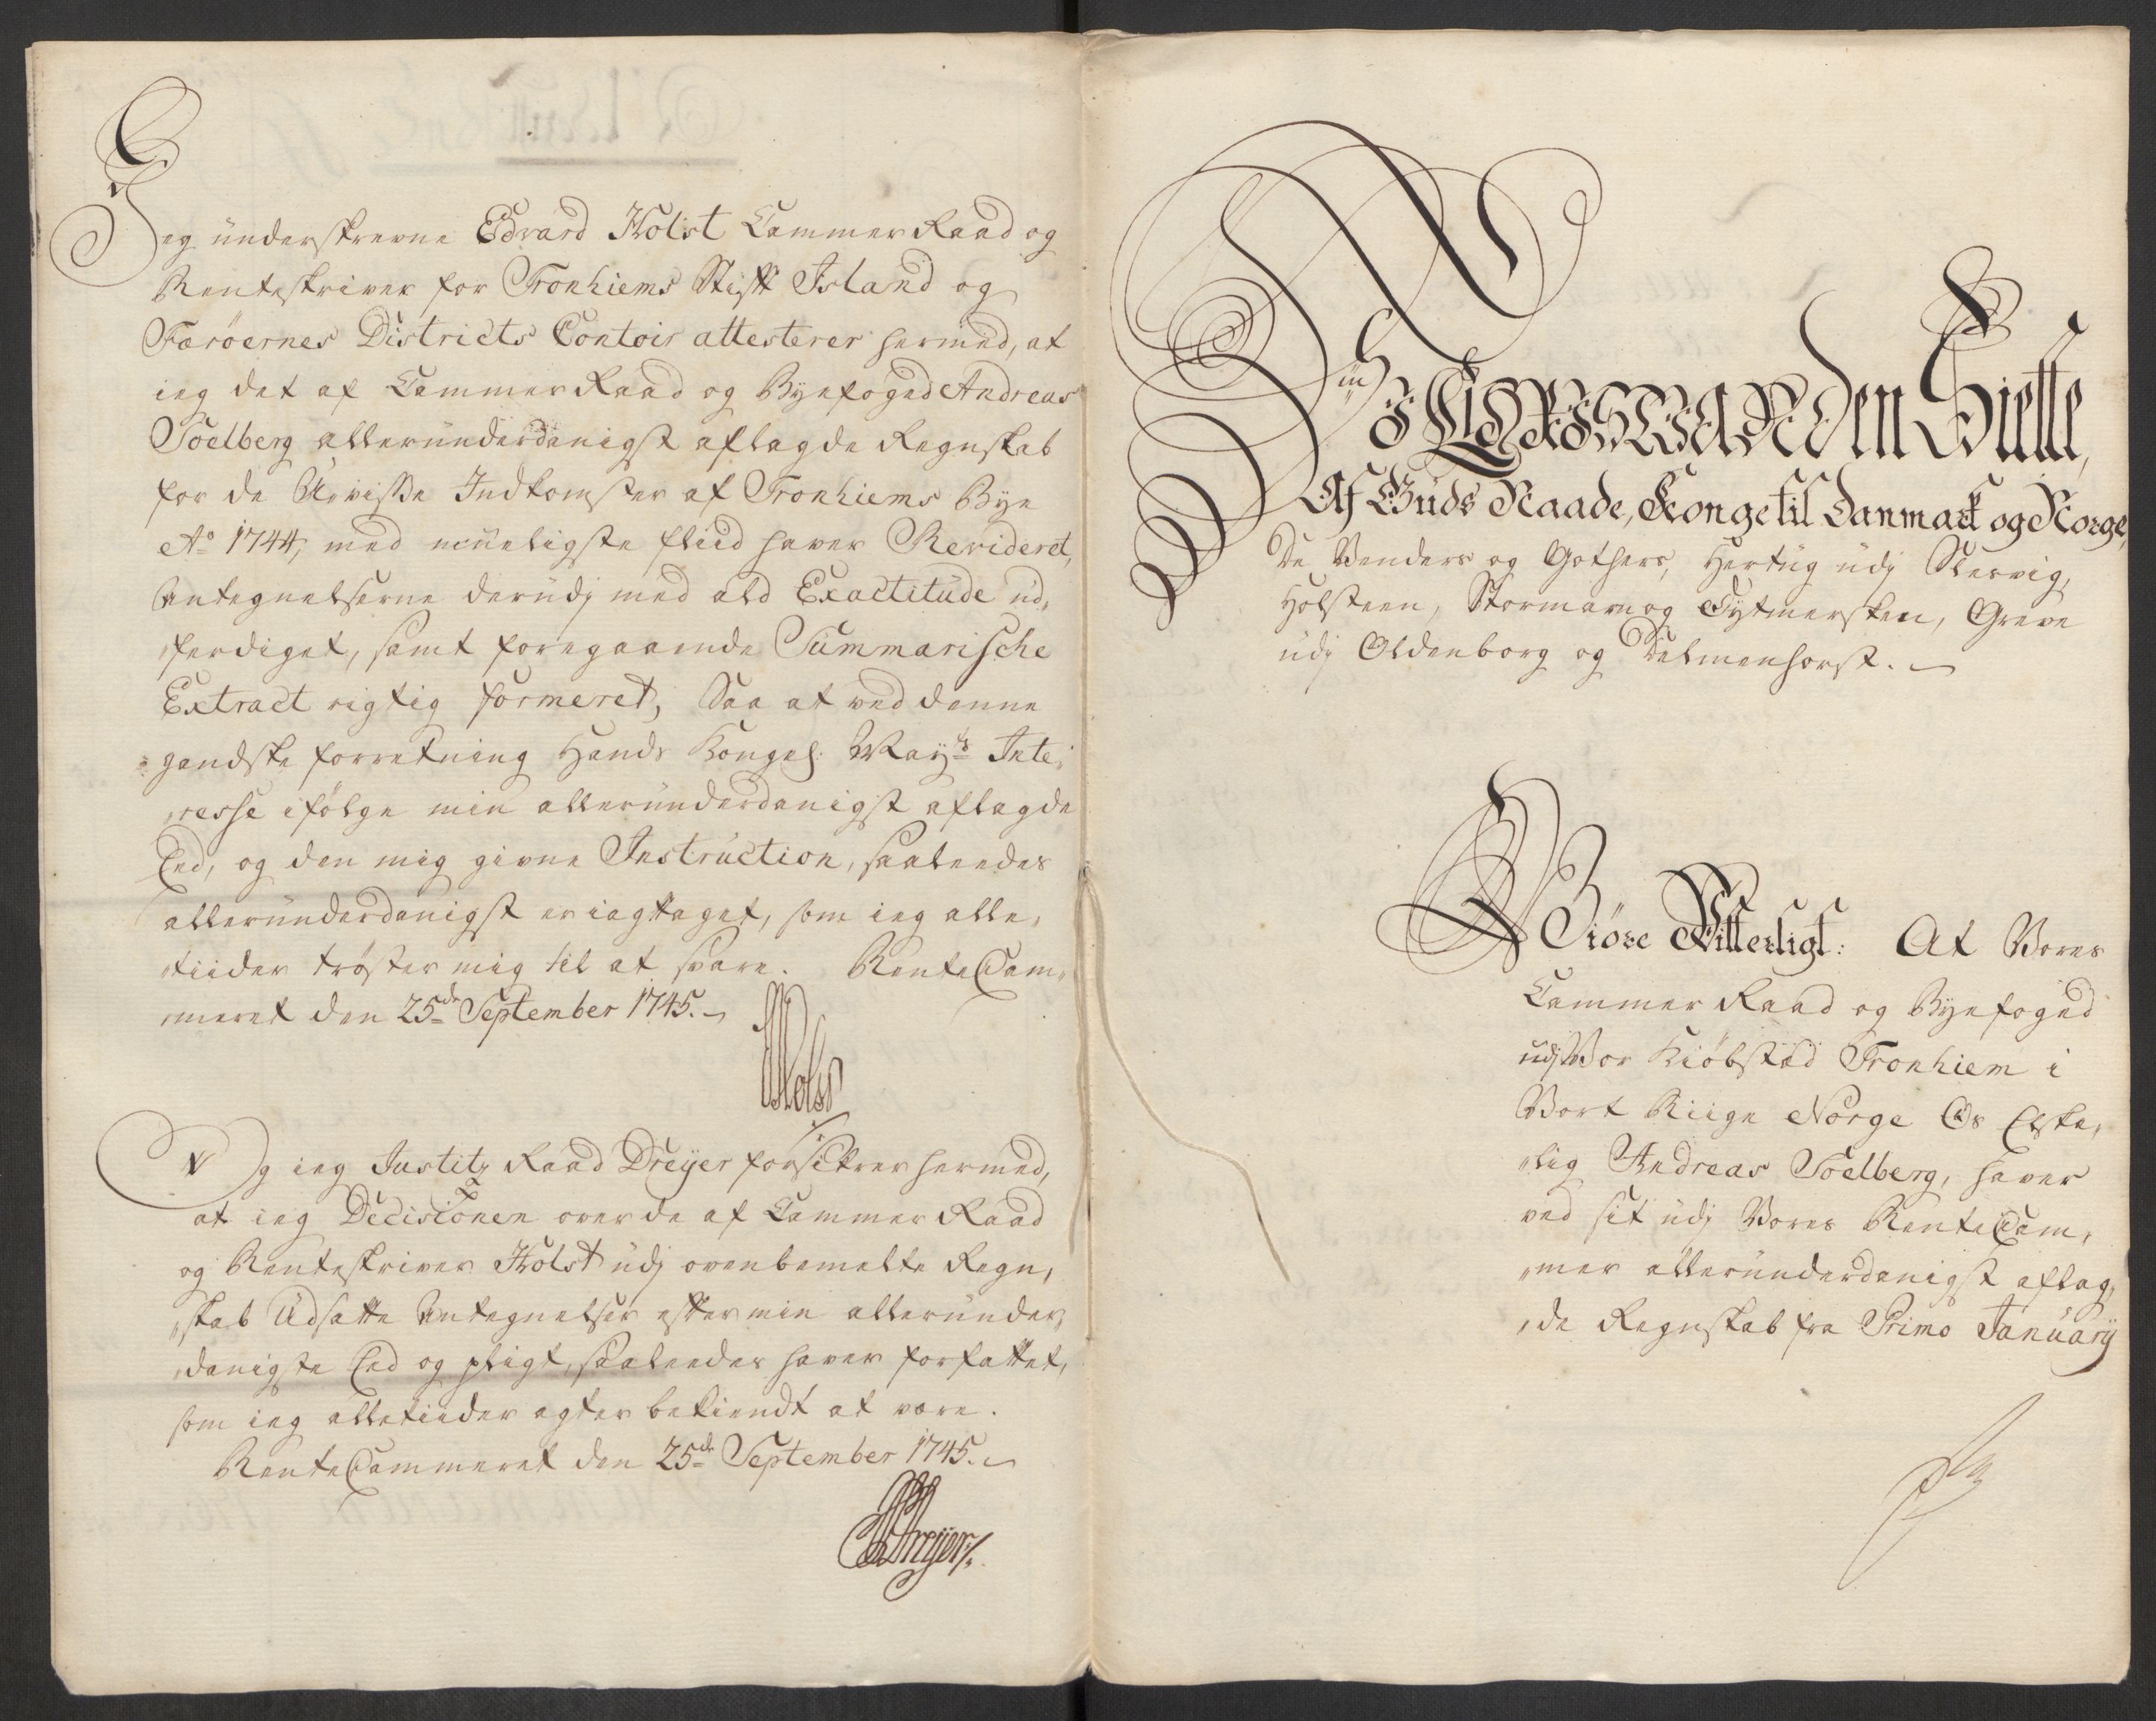 Jeg underskrevne Edvard Holst Cammer Raad og
Renteskriver for Tronhiems Stift Island og
Færöernes Districts Contoir attesterer hermed, at
ieg det af Cammer Raad og Byefoged Andreas
Soelberg allerunderdanigst aflagde Regnskab
for de Uvisse Indkomster af Tronhiems Bye
Ao 1744, med mueligste fliid haver Revideret,
Antegnelserne derudj med ald Exactitude ud,
ferdiget, samt foregaaende Summarische
Extract rigtig formeret, Saa at ved denne
gandske forretning Hands Kongel: Mayts Inte,
resse ifölge min allerunderdanigst aflagde
Eed, og den mig givne Instruction, saaleedes
allerunderdanigst er iagttaget, som ieg alle,
tiider tröster mig til at svare. RenteCam,
meret den 25de September 1745.
Holst
Og ieg Justitz Raad Dreyer forsikrer hermed,
at ieg Decisionen over de af Cammer Raad
og Renteskriver Holst udj ovenbemelte Regn,
skab Udsatte Antegnelser efter min allerunder,
danigste Eed og pligt, saaleedes haver forfattet,
som ieg alletiider agter bekiendt at være.
RenteCammeret den 25de September 1745.
Dreyer
den Siette,
Af Guds Naade, Konge til Danmark og Norge,
De Venders og Gothers, Hertug udj Slesvig,
Holsteen, Stormarn og Dytmersken, Greve
udj Oldenborg og Delmenhorst.
Giöre Vitterligt: At Vores
Cammer Raad og Byefoged
udj Vor Kiöbstæd Tronhiem i
Vort Riige Norge Os Elske,
lig Andreas Soelberg, haver
ved sit udj Vores RenteCam,
mer allerunderdanigst aflag,
de Regnskab fra Primo January